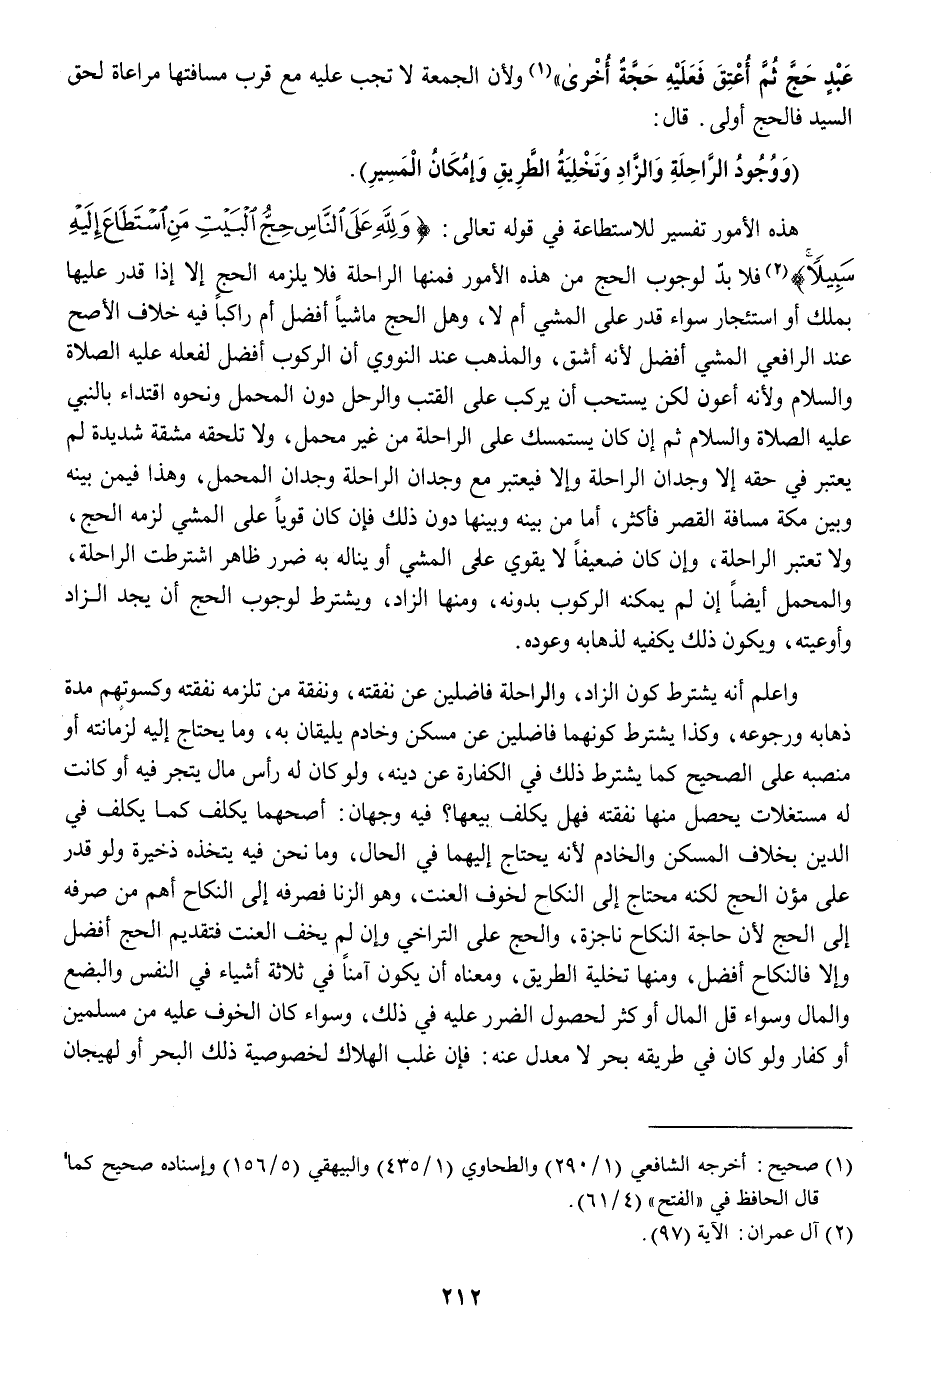 عَبْدٍ حَجَّ ثُمَّ أُعْتِقَ فَعَلَيْهِ حَجَّةٌ أُخْرىٰ»(١) ولأن الجمعة لا تجب عليه مع قرب مسافتها مراعاة لحق
السيد فالحج أولى. قال:
(وَوُجُودُ الرَّاحِلَةِ وَالزَّادِ وَتَخْلِيَةُ الطَّرِيقِ وَإِمْكَانُ الْمَسِيرِ).
هذه الأمور تفسير للاستطاعة في قوله تعالى: ﴿وَلِلَّهِ عَلَى ٱلنَّاسِ حِجُّ ٱلْبَيْتِ مَنِ ٱسْتَطَاعَ إِلَيْهِ
سَبِيلًا﴾(٢) فلا بدّ لوجوب الحج من هذه الأمور فمنها الراحلة فلا يلزمه الحج إلا إذا قدر عليها
بملك أو استئجار سواء قدر على المشي أم لا، وهل الحج ماشياً أفضل أم راكباً فيه خلاف الأصح
عند الرافعي المشي أفضل لأنه أشق، والمذهب عند النووي أن الركوب أفضل لفعله عليه الصلاة
والسلام ولأنه أعون لكن يستحب أن يركب على القتب والرحل دون المحمل ونحوه اقتداء بالنبي
عليه الصلاة والسلام ثم إن كان يستمسك على الراحلة من غير محمل، ولا تلحقه مشقة شديدة لم
يعتبر في حقه إلا وجدان الراحلة وإلا فيعتبر مع وجدان الراحلة وجدان المحمل، وهذا فيمن بينه
وبين مكة مسافة القصر فأكثر، أما من بينه وبينها دون ذلك فإن كان قوياً على المشي لزمه الحج،
ولا تعتبر الراحلة، وإن كان ضعيفاً لا يقوي على المشي أو يناله به ضرر ظاهر اشترطت الراحلة،
والمحمل أيضاً إن لم يمكنه الركوب بدونه، ومنها الزاد، ويشترط لوجوب الحج أن يجد الـزاد
وأوعيته، ويكون ذلك يكفيه لذهابه وعوده.
واعلم أنه يشترط كون الزاد، والراحلة فاضلين عن نفقته، ونفقة من تلزمه نفقته وكسوتهم مدة
ذهابه ورجوعه، وكذا يشترط كونهما فاضلين عن مسكن وخادم يليقان به، وما يحتاج إليه لزمانته أو
منصبه على الصحيح كما يشترط ذلك في الكفارة عن دينه، ولو كان له رأس مال يتجر فيه أو كانت
له مستغلات يحصل منها نفقته فهل يكلف بيعها؟ فيه وجهان: أصحهما يكلف كما يكلف في
الدين بخلاف المسكن والخادم لأنه يحتاج إليهما في الحال، وما نحن فيه يتخذه ذخيرة ولو قدر
على مؤن الحج لكنه محتاج إلى النكاح لخوف العنت، وهو الزنا فصرفه إلى النكاح أهم من صرفه
إلى الحج لأن حاجة النكاح ناجزة، والحج على التراخي وإن لم يخف العنت فتقديم الحج أفضل
وإلا فالنكاح أفضل، ومنها تخلية الطريق، ومعناه أن يكون آمناً في ثلاثة أشياء في النفس والبضع
والمال وسواء قل المال أو كثر لحصول الضرر عليه في ذلك، وسواء كان الخوف عليه من مسلمين
أو كفار ولو كان في طريقه بحر لا معدل عنه: فإن غلب الهلاك لخصوصية ذلك البحر أو لهيجان
(١) صحيح: أخرجه الشافعي (٢٩٠/١) والطحاوي (٤٣٥/١) والبيهقي (١٥٦/٥) وإسناده صحيح كما
قال الحافظ في «الفتح» (٦١/٤).
(٢) آل عمران: الآية (٩٧).
٢١٢